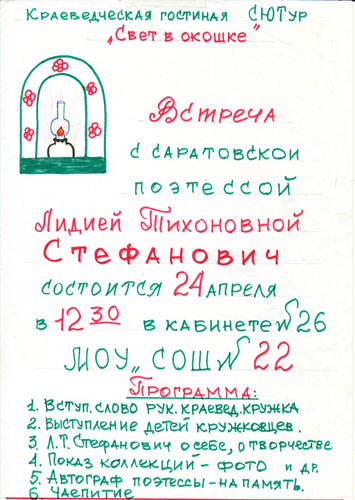 Краеведческая гостиная СЮТур
„Свет в окошке"
Встреча
с саратовской
поэтессой
Лидией Тихоновной
Стефанович
состоится 24 апреля
в 12 30 в кабинете №26
МОУ „СОШ №22
Программа:
1. Вступ. слово рук. краевед. кружка
2. Выступление детей кружковцев.
3. Л.Т. Стефанович о себе, о творчестве
4. Показ коллекций - фото и др.
5. Автограф поэтессы - на память.
6. Чаепитие